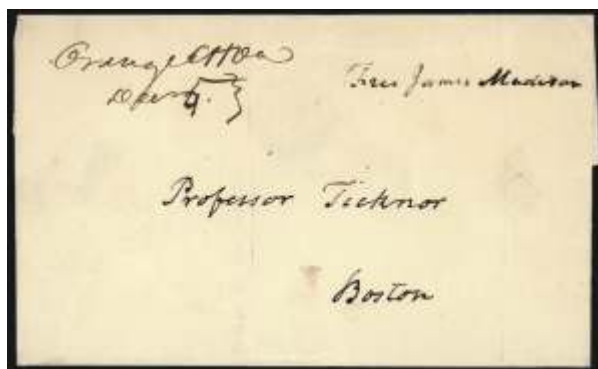 Orange CH Va
Free James Madison
Professor Ticknor
Boston